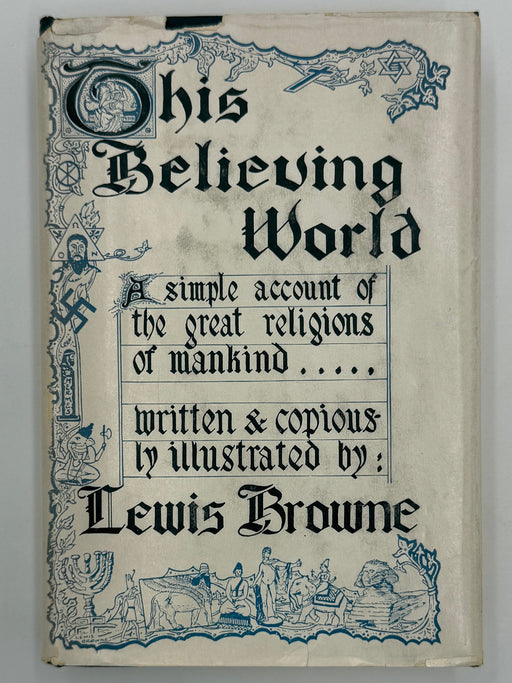 This
Believing
World
A simple account of
the great religions
of mankind . . . . .
written & copious-
ly illustrated by:
Lewis Browne